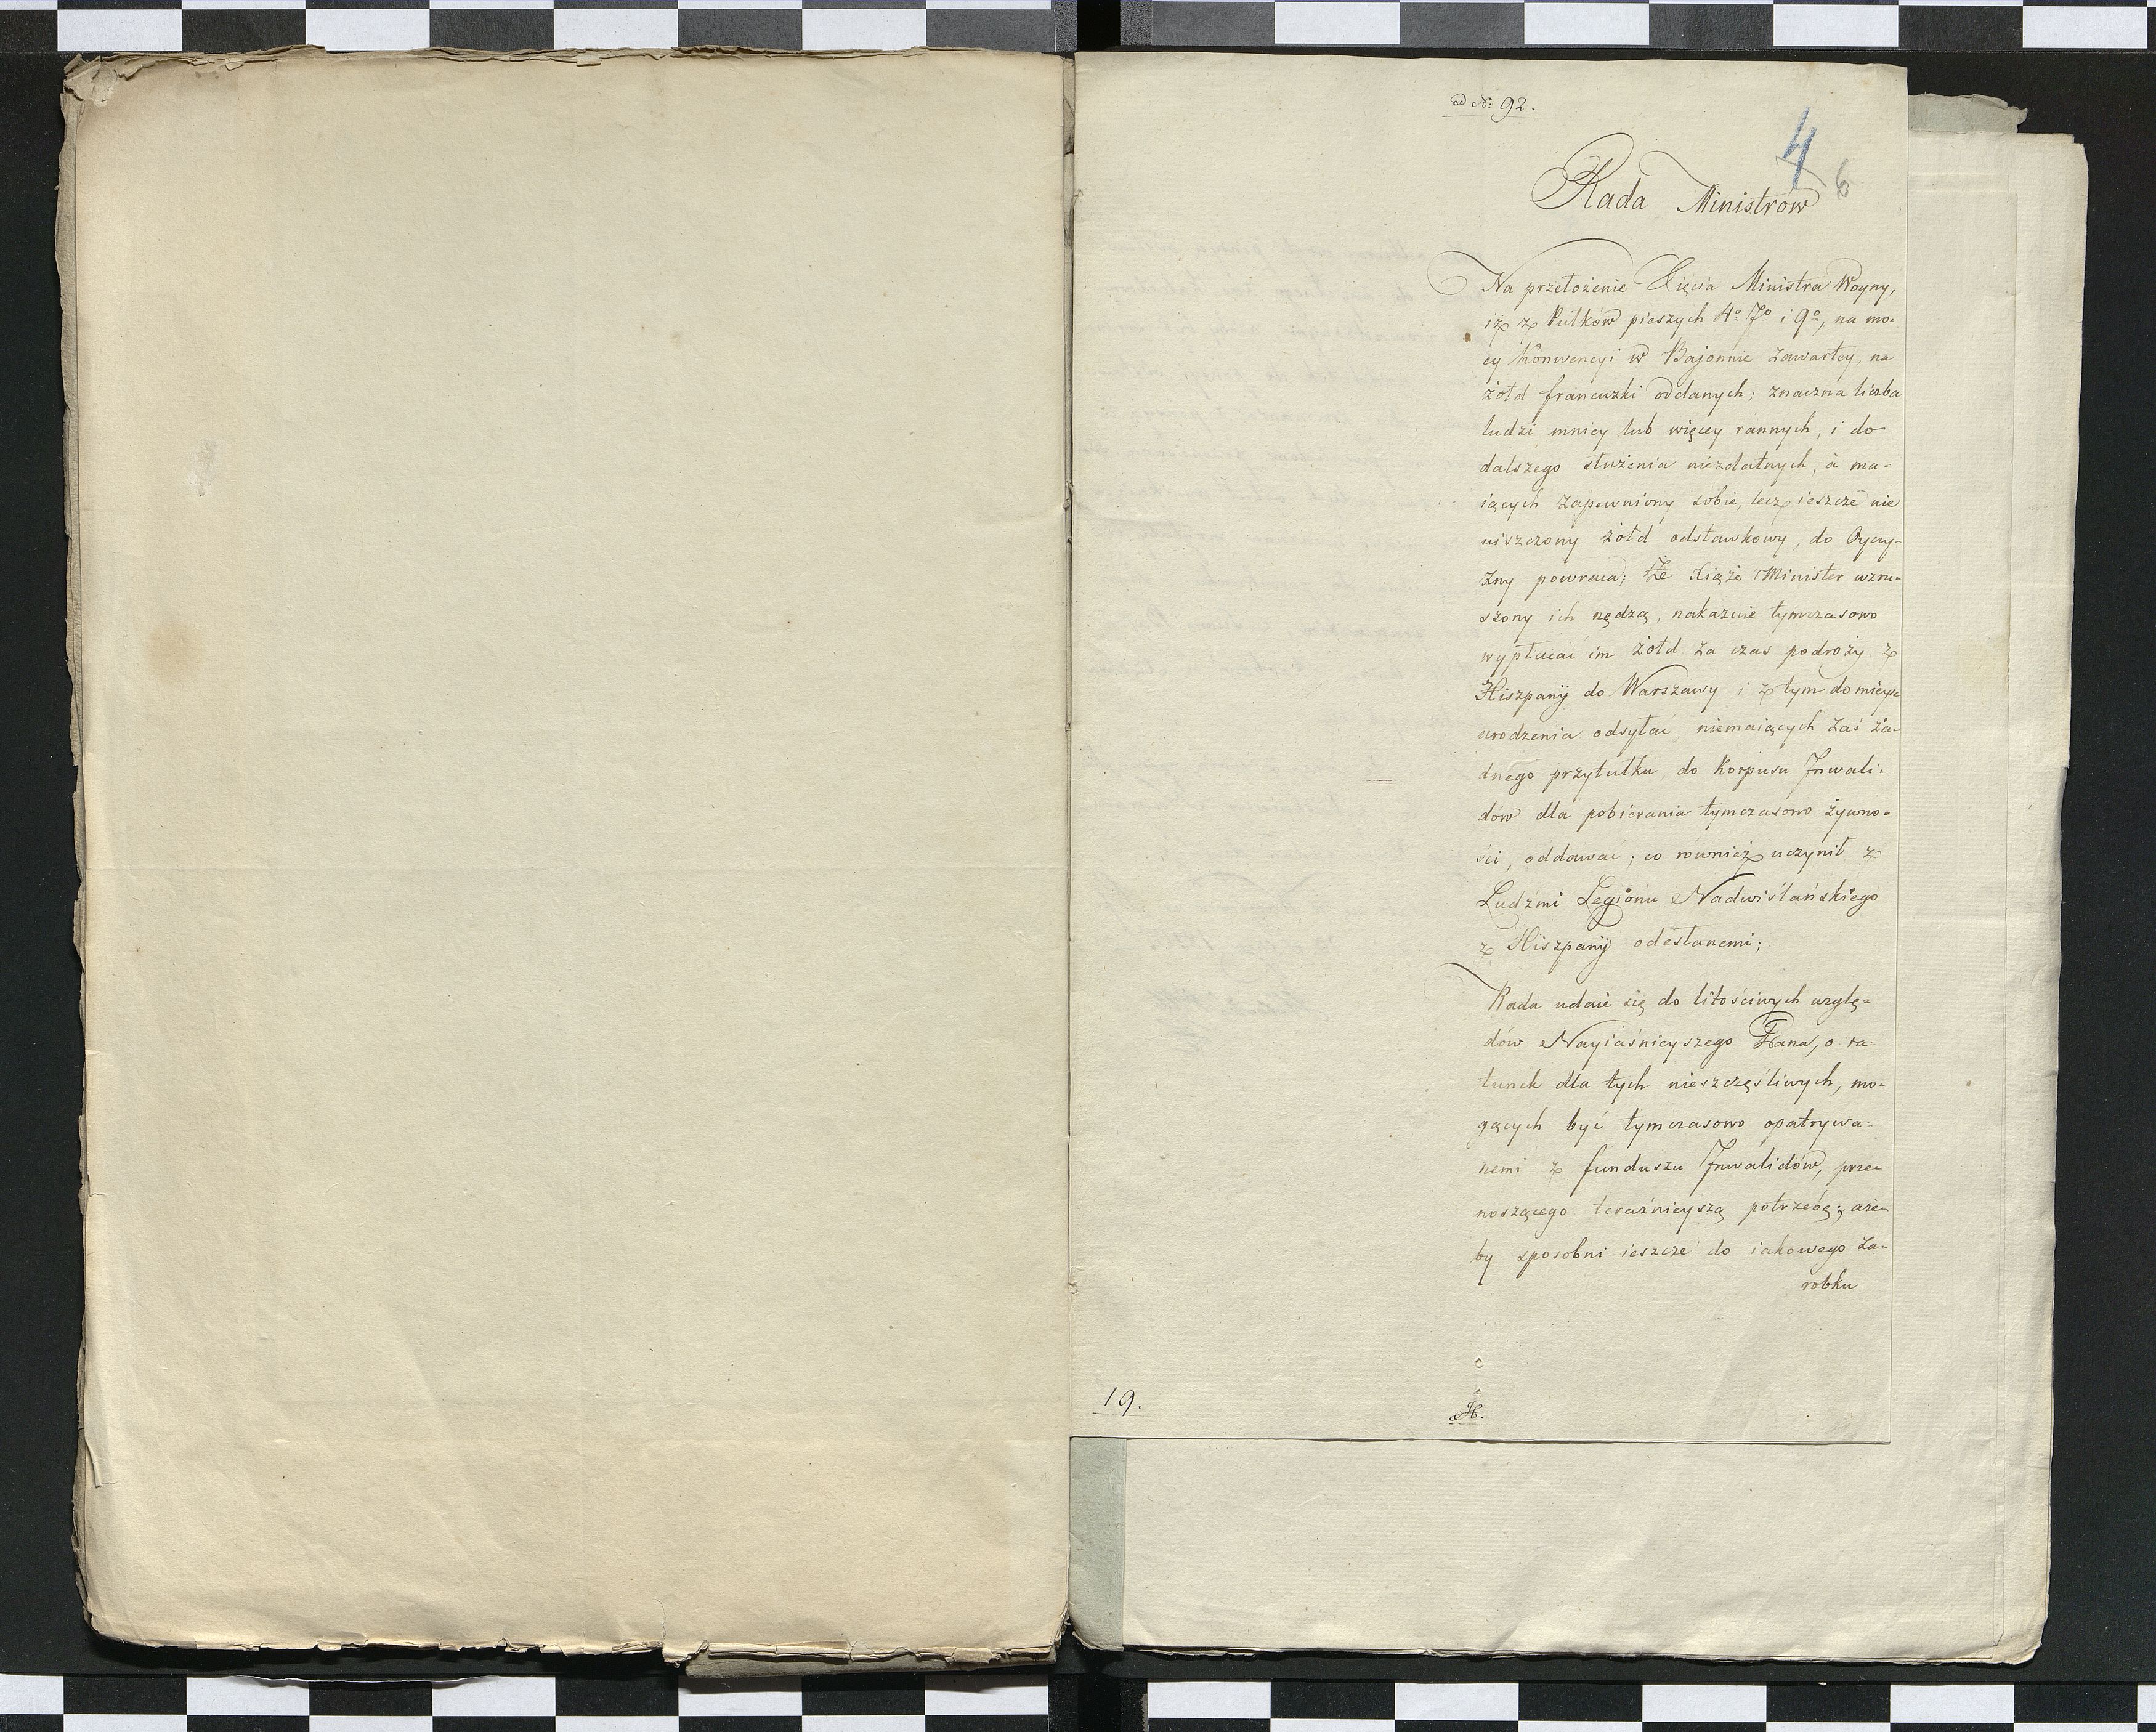 ad N: 92.
4
6
Rada Ministrów
Na przełożenie Xięcia Ministra Woyny,
iż z Pułków pieszych 4º 7º i 9º, na mo-
cy Konwencyi w Bajonnie zawartey, na
żołd francuzki oddanych; znaczna liczba
ludzi mniey lub więcey rannych, i do
dalszego służenia niezdatnych, à ma-
iących zapewniony sobie, lecz ieszcze nie
uiszczony żołd odstawkowy, do Oyczy-
zny powraca; Że Xiąże Minister wzru-
szony ich nędzą, nakazuie tymczasowo
wypłacać im żołd za czas podroży z
Hiszpanij do Warszawy i z tym do mieysc
urodzenia odsyłać, niemaiących zaś ża-
dnego przytułku, do Korpusu Inwali-
dów dla pobierania tymczasowo żywno-
ści, oddawać; co również uczynił z
Ludźmi Legionu Nadwiślańskiego
z Hiszpanij odesłanemi;
Rada udaie się do litościwych wzglę-
dów Nayiaśnieyszego Pana, o ra-
tunek dla tych nieszczęśliwych, mo-
gących być tymczasowo opatrywa-
nemi z funduszu Inwalidów, prze-
noszącego teraźnieyszą potrzebę; aże-
by sposobni ieszcze do iakowego za-
robku
19.